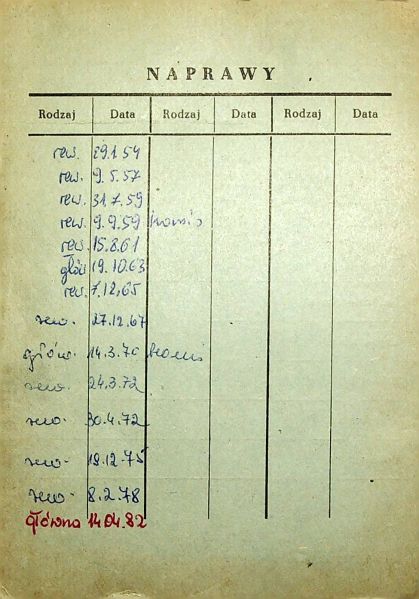 NAPRAWY
Rodzaj Data Rodzaj Data Rodzaj Data
rew. 29.1.54
rew. 9.5.57
rew. 31.7.59
rew. 9.9.59
rew. 15.8.61
głów 19.10.63
rew. 7.12.65
rew. 27.12.67
głów. 14.3.70
rew. 24.3.72
rew. 30.4.72
rew. 18.12.75
rew. 8.2.78
główna 14.04.82